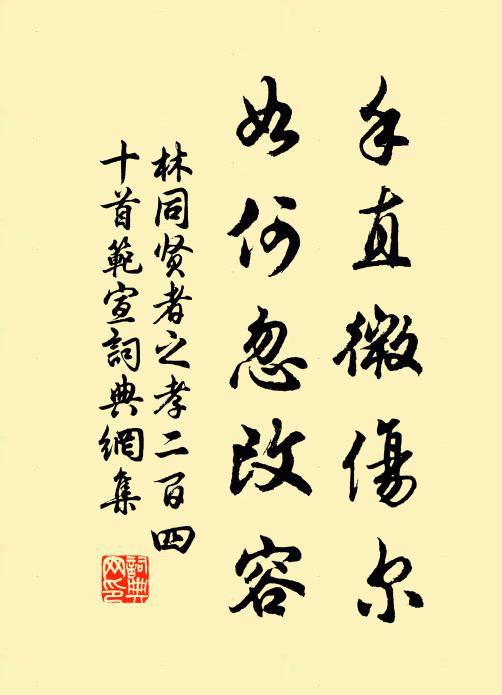 手直微傷尔
如何忽改容
林同贤者之孝二百四
十首範宣詞典網集
詞典网印